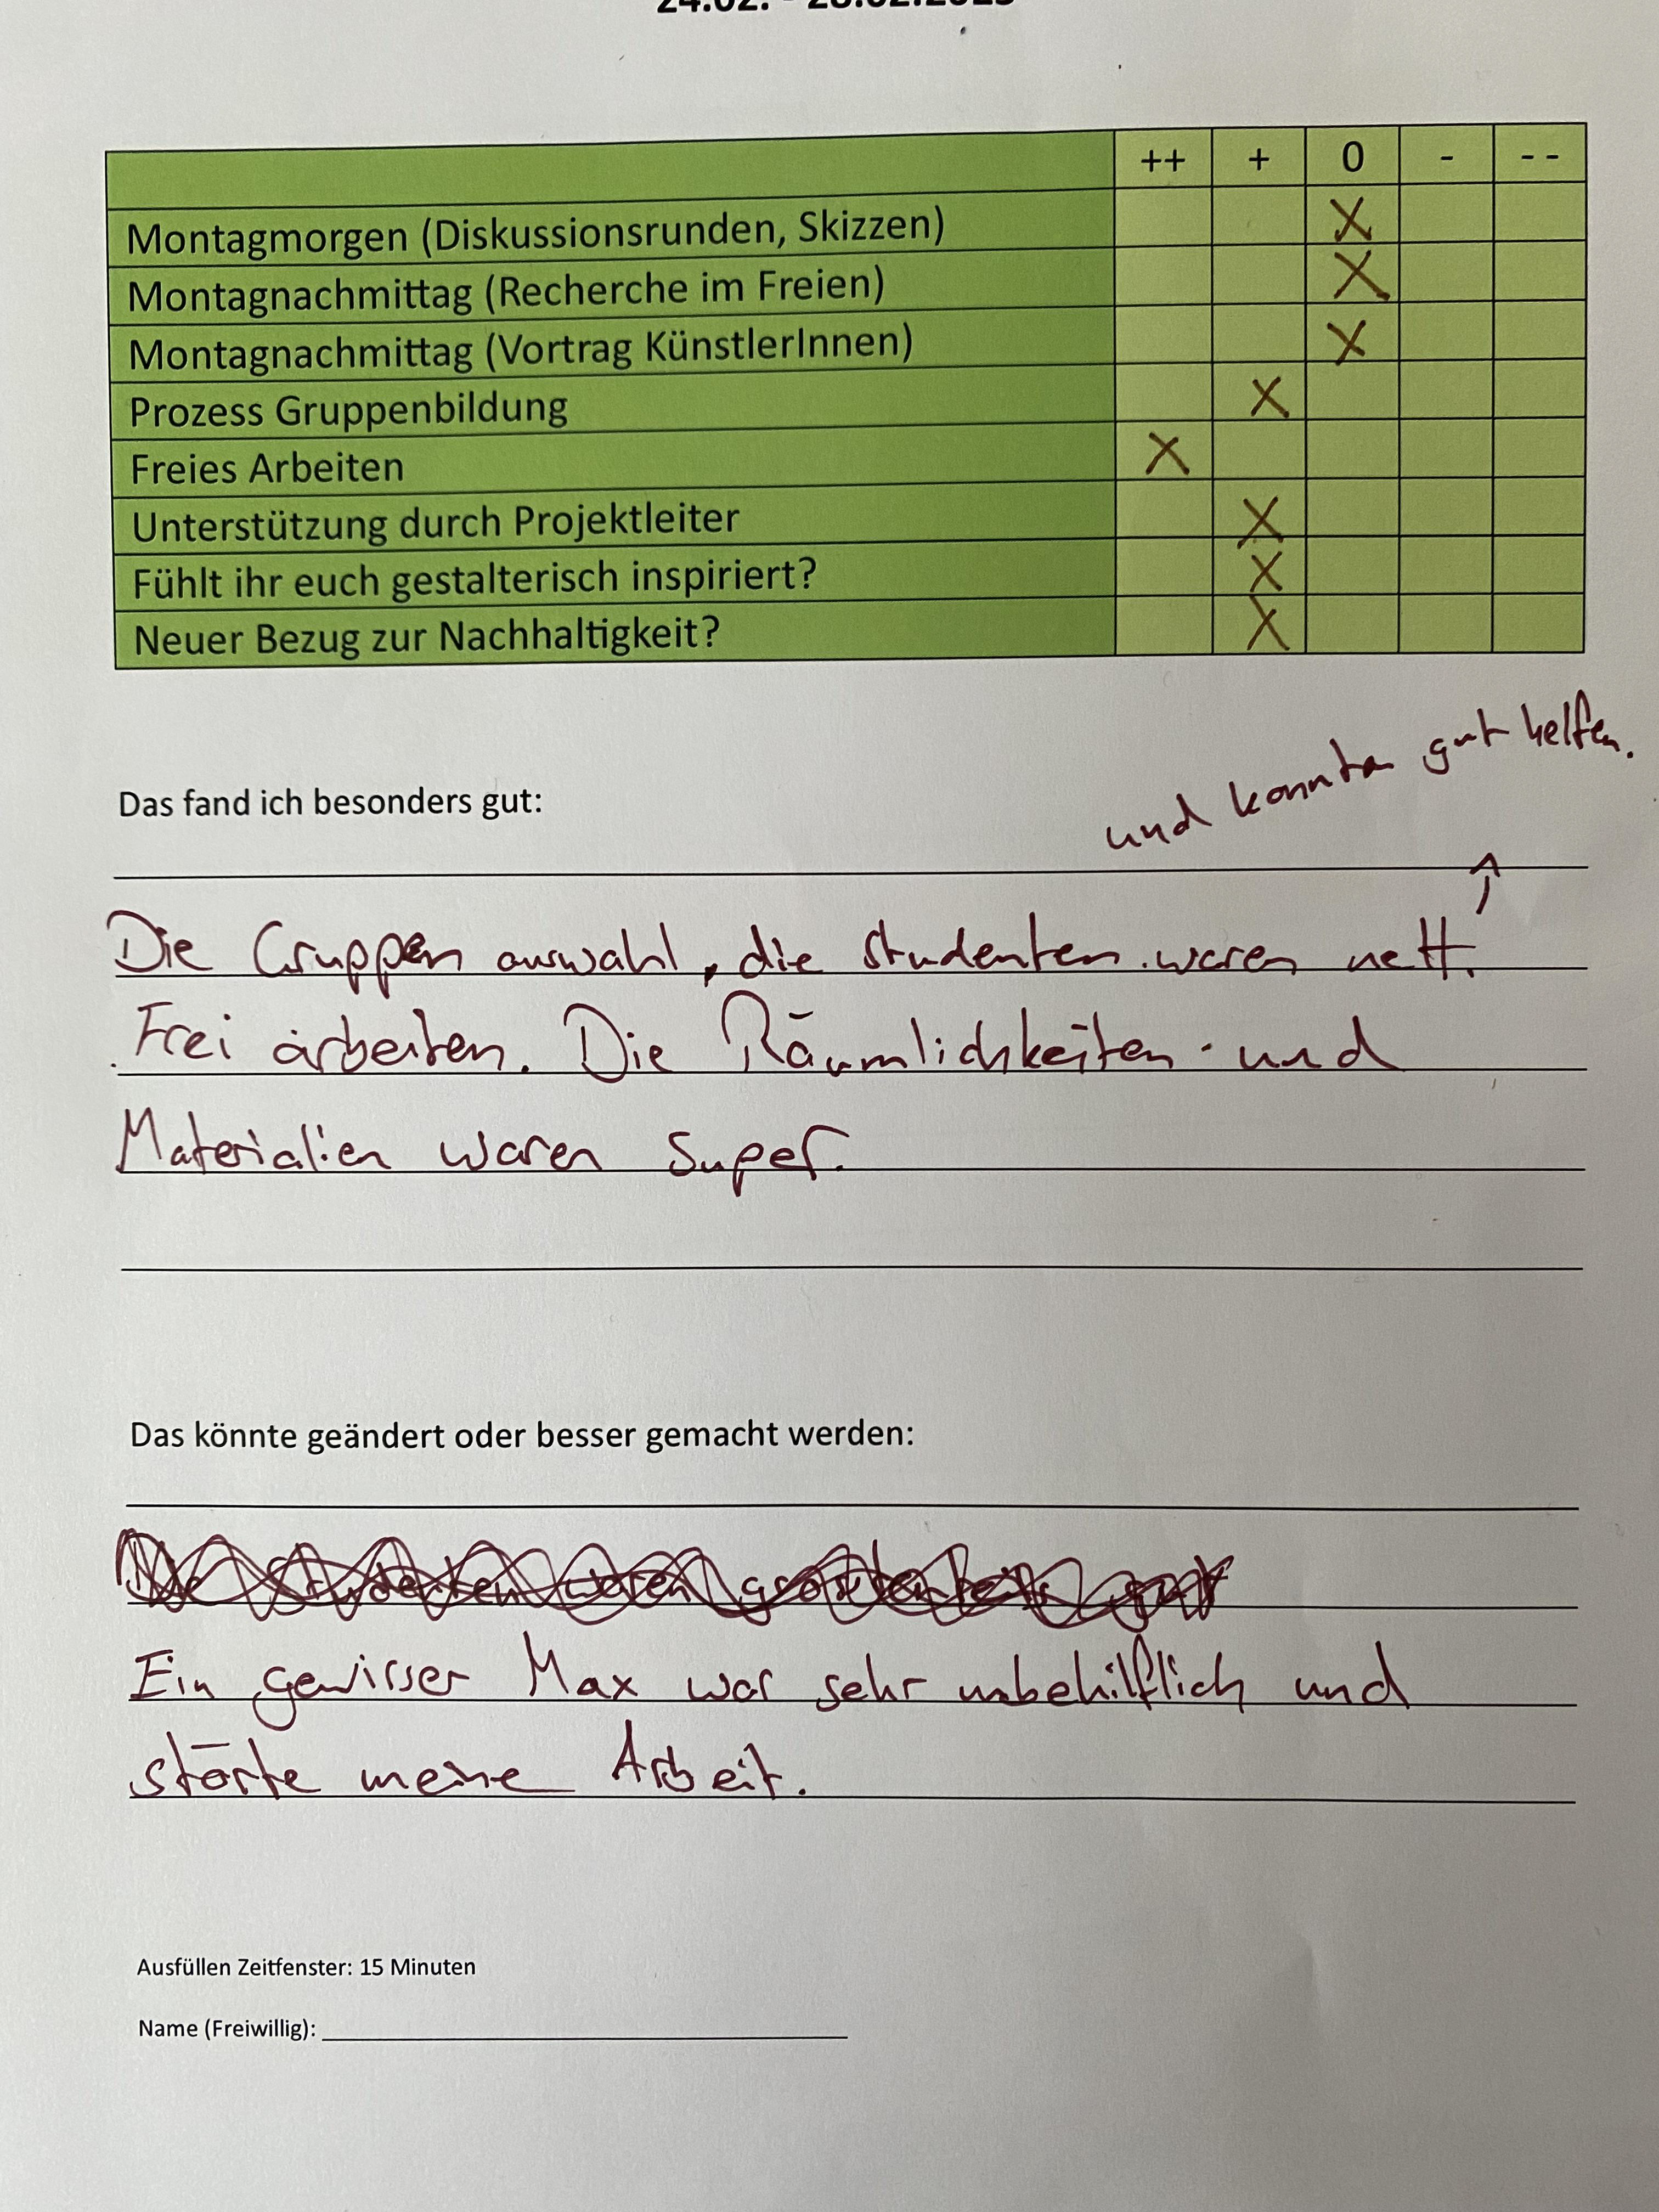 ++ + 0 - - -
Montagmorgen (Diskussionsrunden, Skizzen) X
Montagnachmittag (Recherche im Freien) X
Montagnachmittag (Vortrag KünstlerInnen) X
Prozess Gruppenbildung X
Freies Arbeiten X
Unterstützung durch Projektleiter X
Fühlt ihr euch gestalterisch inspiriert? X
Neuer Bezug zur Nachhaltigkeit? X
und konnten gut helfen.
Das fand ich besonders gut:
Die Gruppen auswahl, die studenten waren nett.
Frei arbeiten. Die Räumlichkeiten und
Materialien waren super.
Das könnte geändert oder besser gemacht werden:
Die Studenten waren größtenteils gut
Ein gewisser Max war sehr unbehilflich und
störte meine Arbeit.
Ausfüllen Zeitfenster: 15 Minuten
Name (Freiwillig):